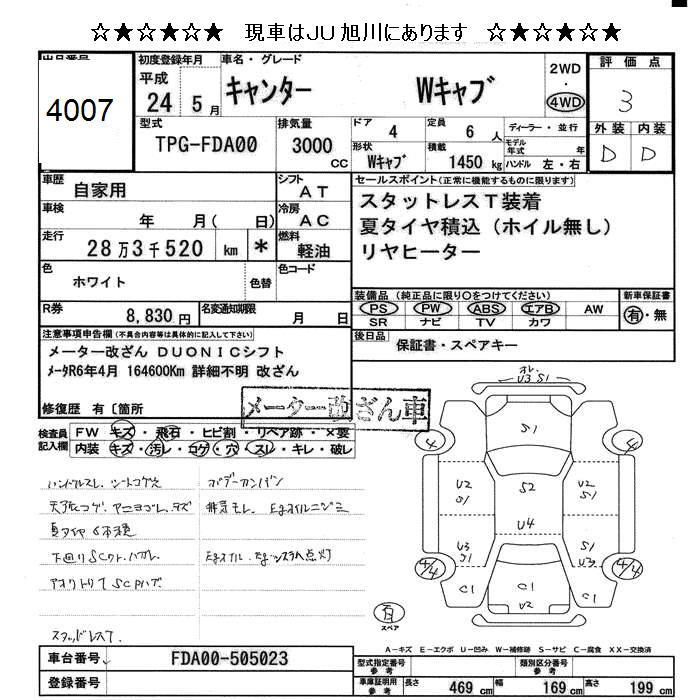 ☆★☆★☆★ 現車はJU旭川にあります ☆★☆★☆★
出品番号
4007
初度登録年月
平成
24 5月
車名・グレード
キャンター Wキャブ
2WD
・
4WD
評価点
3
外装 内装
D D
型式
TPG-FDA00
排気量
3000
CC
ドア
4
定員
6 人
ディーラー・並行
形状
Wキャブ
積載
1450 kg
モデル年式 年
ハンドル 左・右
車歴
自家用
シフト
AT
セールスポイント(正常に機能するものに限ります)
スタットレスT装着
夏タイヤ積込(ホイル無し)
リヤヒーター
車検
年 月( 日)
冷房
AC
走行
28万3千520 km *
燃料
軽油
色
ホワイト
色替
色コード
装備品(純正品に限り○をつけてください)
PS PW ABS エアB AW
SR ナビ TV カワ
新車保証書
有・無
R券
8,830円
名変通知期限
月 日
後日品
保証書・スペアキー
注意事項申告欄(不具合内容等は具体的に記入して下さい)
メーター改ざん DUONICシフト
メータR6年4月 164600Km 詳細不明 改ざん
修復歴 有〔箇所
メーター改ざん車
検査員記入欄
FW キズ・飛石・ヒビ割・リペア跡・×要
内装 キズ・汚レ・コゲ・穴・スレ・キレ・破レ
ハンドルスレ、シートコゲ穴
ボデーサンパン
夏タイヤ6本積
下回りSCワレ、ハガレ
アオリトリてSCPハズ
スタッドレスT.
オレ
U3 S1
S1
4 4
U2 S1
S2
U2 S1
U4
U3 S1
S1 U3
4/4 4/4
C1
C1
U2
C1
有
スペア
A-キズ E-エクボ U-凹み W-補修跡 S-サビ C-腐食 XX-交換済
車台番号
FDA00-505023
登録番号
型式指定番号
参考
類別区分番号
参考
車庫証明用
参考
長さ 469 cm 幅 169 cm 高さ 199 cm